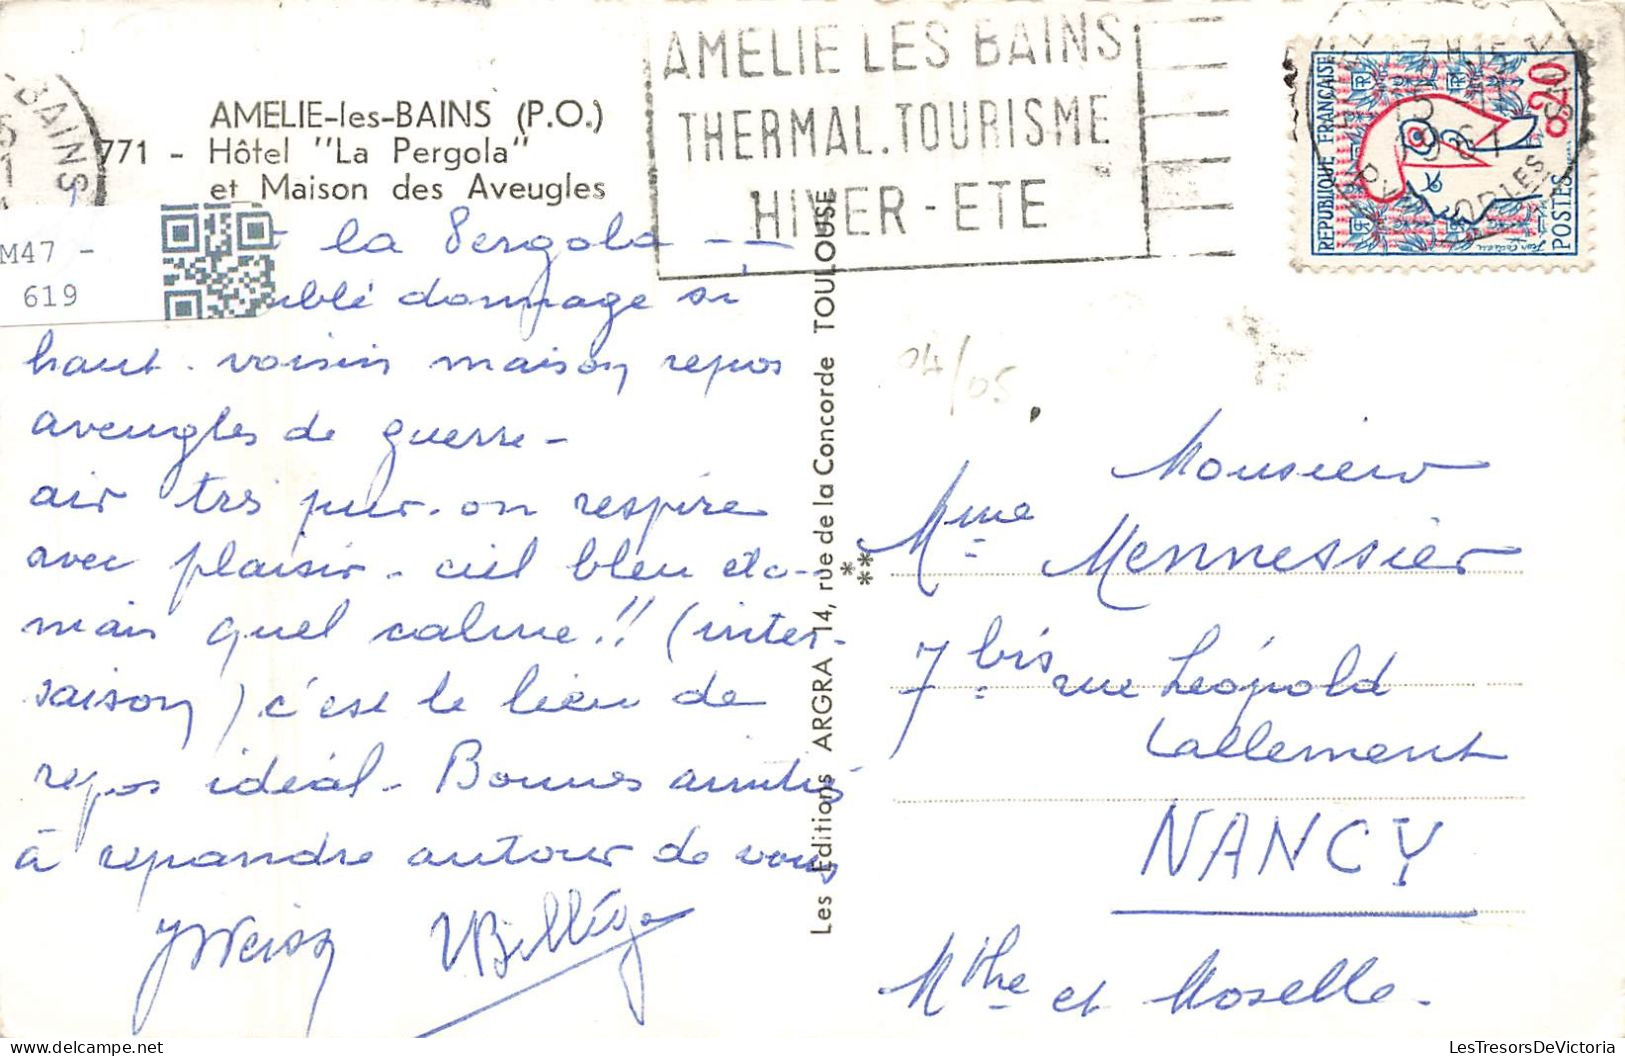 AMELIE-les-BAINS (P.O.)
771 - Hôtel "La Pergola"
et Maison des Aveugles
BAINS
M47 -
619
AMELIE LES BAINS
THERMAL.TOURISME
HIVER - ETE
REPUBLIQUE FRANÇAISE
0,20
POSTES
la Pergola -
dommage si
haut. voisin maison repos
aveugles de guerre -
air très pur. on respire
avec plaisir - ciel bleu etc -
mais quel calme!! (inter-
saison) c'est le lieu de
repos idéal - Bonnes amitiés
à repandre autour de vous
JWeiss
Les Editions ARGRA 14, rue de la Concorde TOULOUSE
04/05
Monsieur
Mme Mennessier
7 bis rue Léopold
Lallement
NANCY
Mthe et Moselle.
LesTresorsDeVictoria